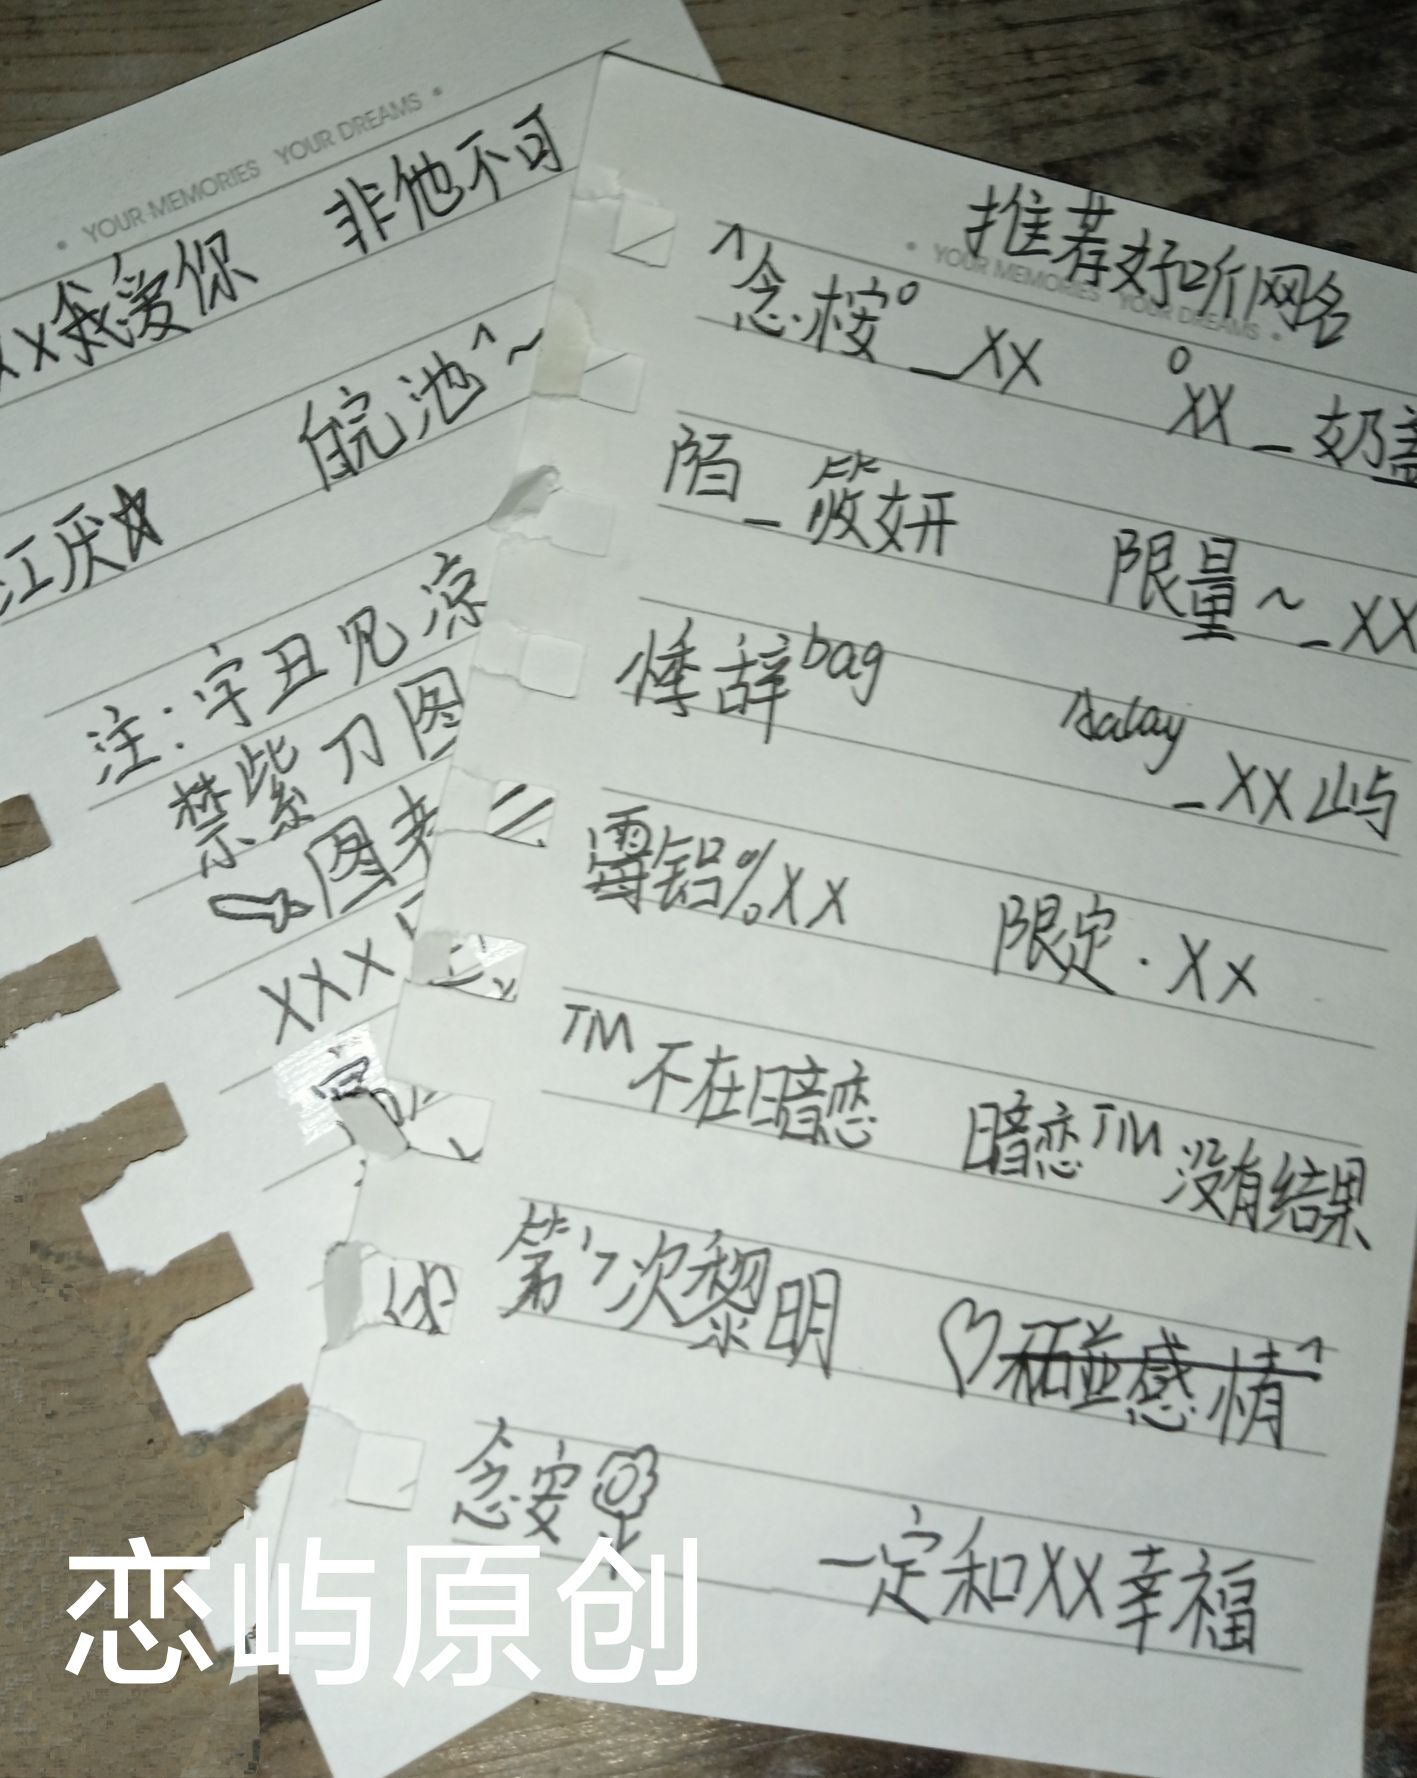 YOUR MEMORIES YOUR DREAMS
xx我爱你 非他不可
皖池^~
江厌☆
注:字丑见凉
禁紫刀图
图
xxx
推荐好听网名
YOUR MEMORIES YOUR DREAMS
^念桉°_xx °xx_奶盖
陌_筱妍 限量~_xx
辞bag _xx屿
霉铅%xx 限定·xx
TM不在暗恋 暗恋TM没有结果
第17次黎明 ♡碰感情^
念安 一定和xx幸福
恋屿原创